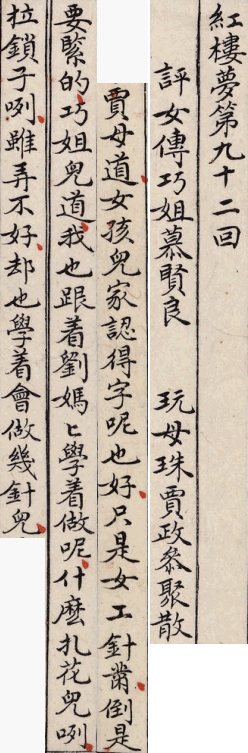 紅樓夢第九十二回
評女傳巧姐慕賢良 玩母珠賈政叅聚散
賈母道女孩兒家認得字呢也好只是女工針黹倒是
要𦂳的巧姐兒道我也跟着劉媽〻學着做呢什麽扎花兒咧
拉鎖子咧雖弄不好却也學着會做幾針兒